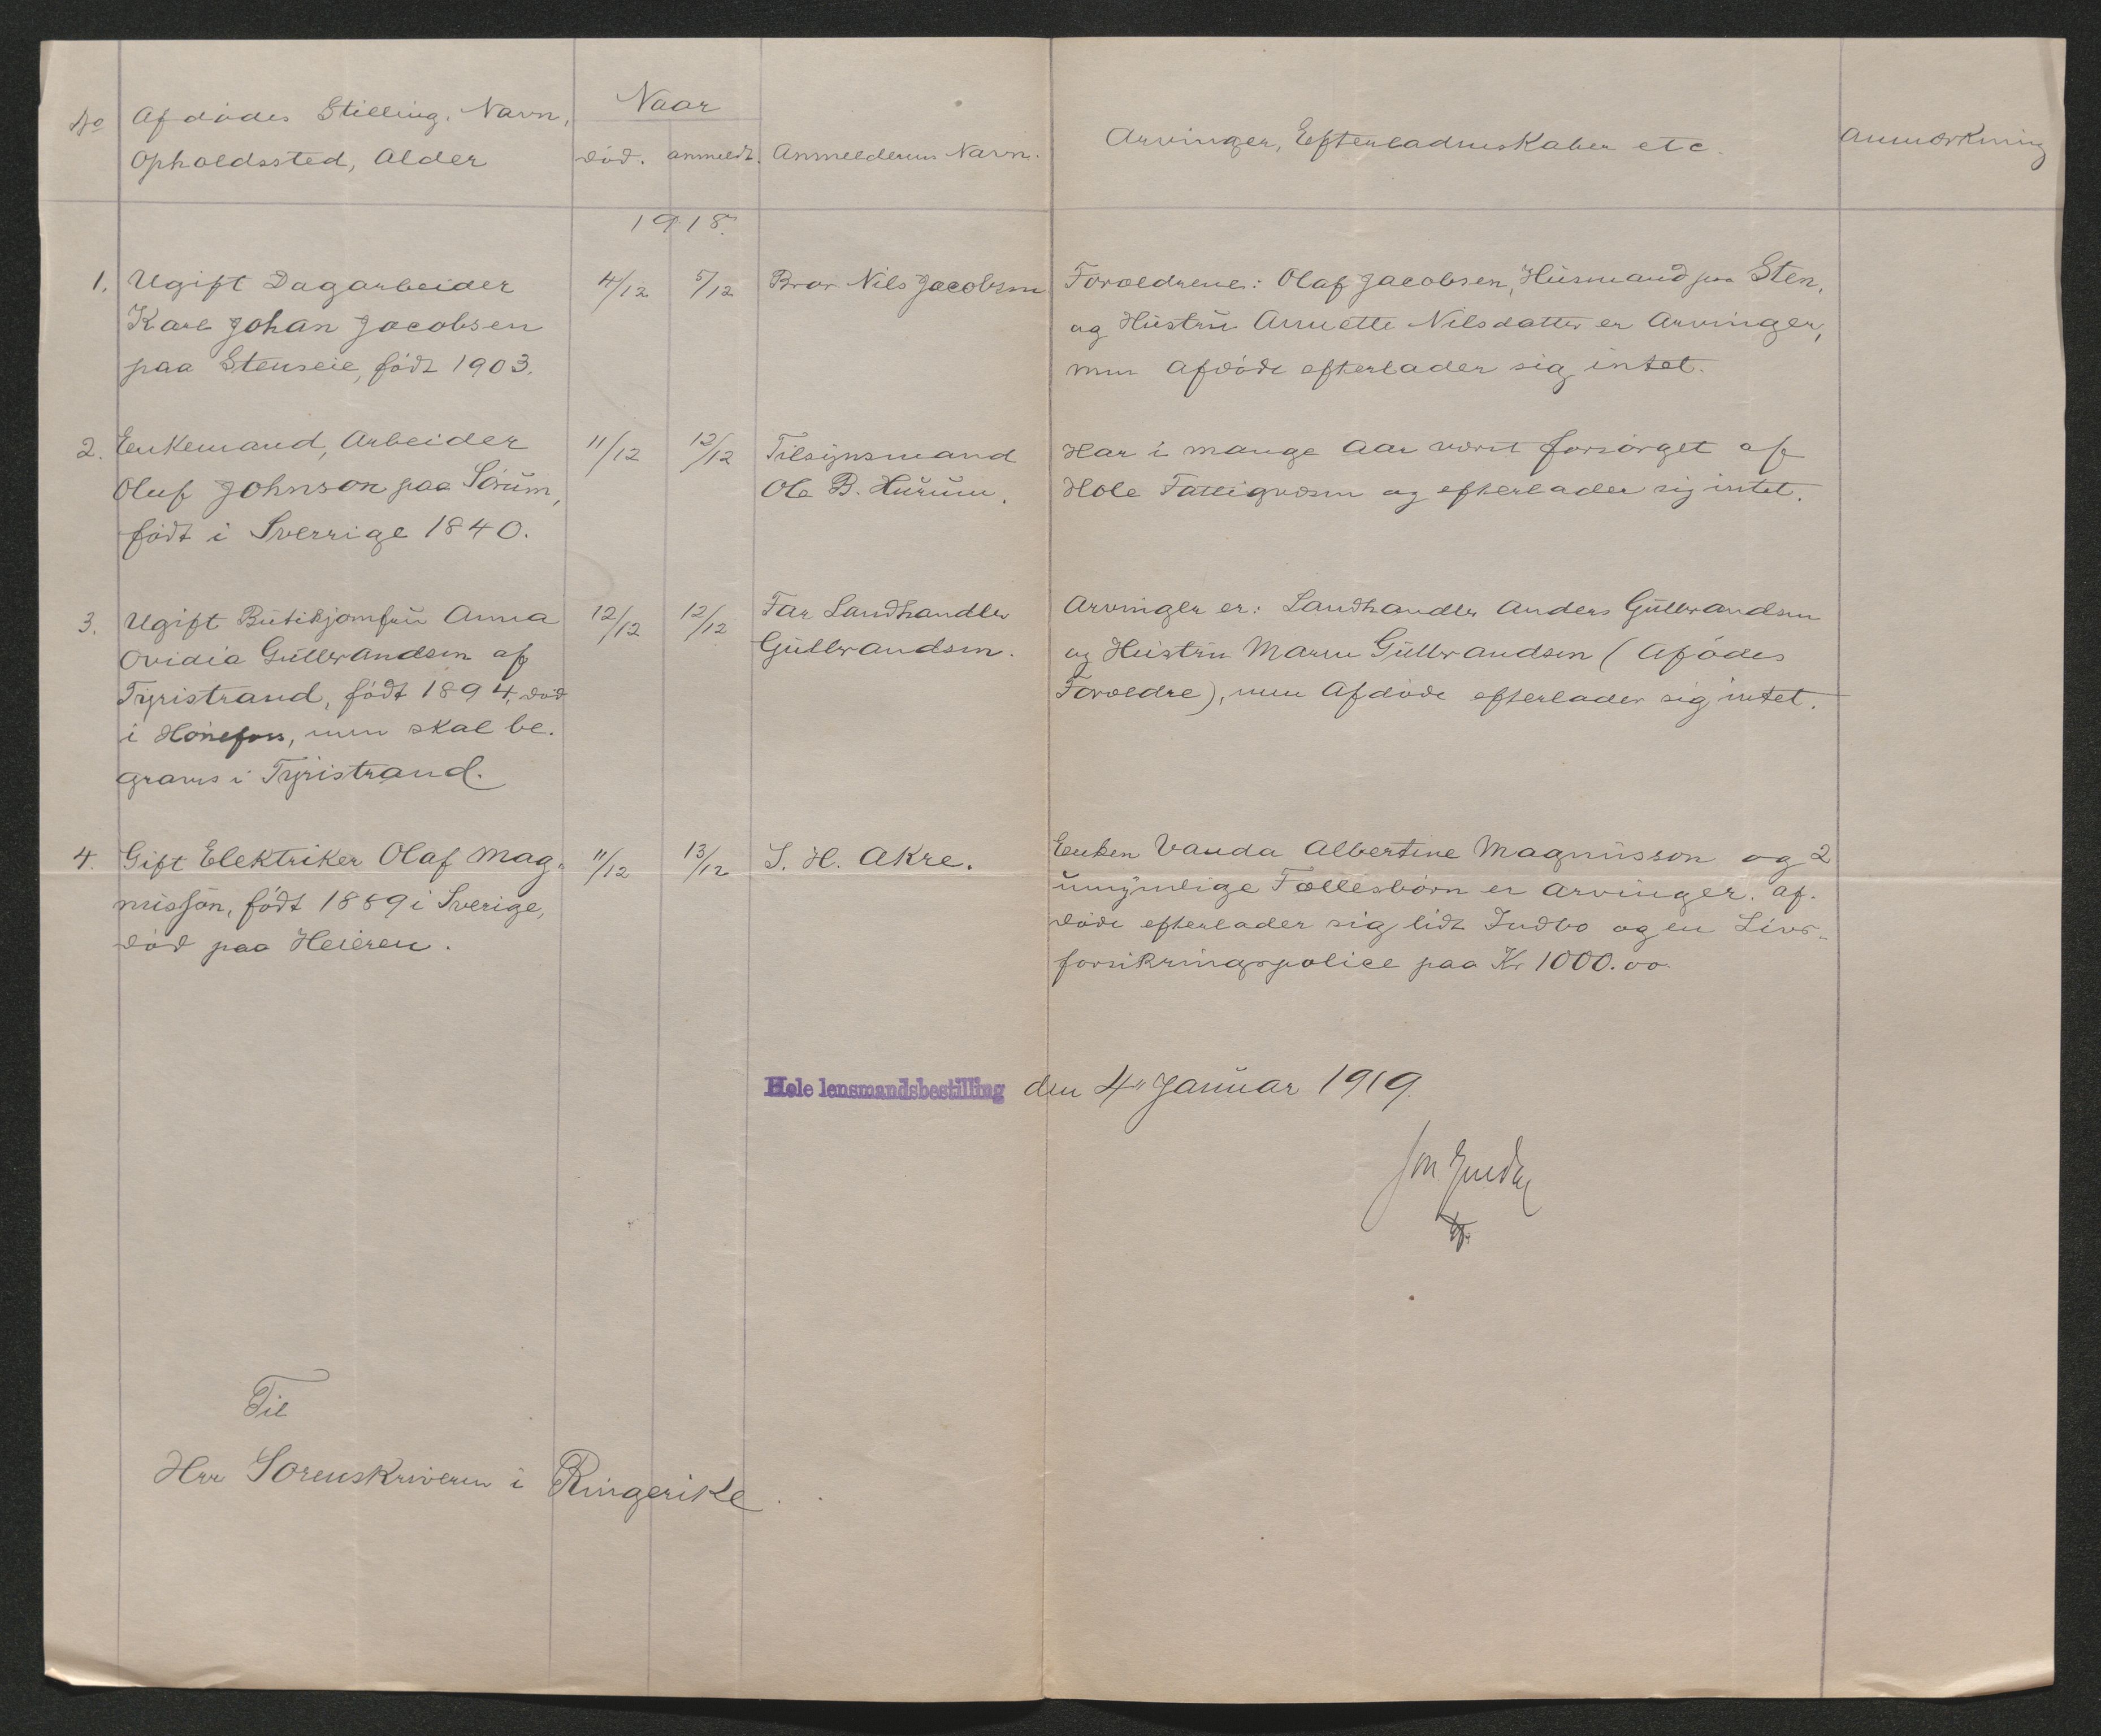 No
Afdødes Stilling, Navn,
Opholdssted, Alder
Naar
død. anmeldt.
Anmelderens Navn.
Arvinger, Efterladenskaber etc.
Anmærkning
1918.
1. Ugift Dagarbeider
Karl Johan Jacobsen
paa Stenseie, født 1903.
4/12 5/12
Bror Nils Jacobsen
Forældrene: Olaf Jacobsen, Husmand paa Sten,
og Hustru Annette Nilsdatter er Arvinger,
men Afdøde efterlader sig intet.
2. Enkemand, Arbeider
Oluf Johnson paa Sørum,
født i Sverrige 1840.
11/12 12/12
Tilsynsmand
Ole B. Hurum.
Har i mange Aar været forsørget af
Hole Fattigvæsen og efterlader sig intet.
3. Ugift Butikjomfru Anna
Ovidia Gulbrandsen af
Tyristrand, født 1894, død
i Hønefoss, men skal be-
graves i Tyristrand.
12/12 12/12
Far Landhandler
Gulbrandsen.
Arvinger er: Landhandler Anders Gulbrandsen
og Hustru Maren Gulbrandsen (Afdødes
Forældre), men Afdøde efterlader sig intet.
4. Gift Elektriker Olaf Mag-
nusson, født 1889 i Sverige,
død paa Heieren.
11/12 13/12
S. H. Akre.
Enken Vanda Albertine Magnusson og 2
umyndige Fællesbørn er Arvinger. Af-
døde efterlader sig lidt Indbo og en Livs-
forsikringspolice paa Kr 1000.00
Hole lensmandsbestilling den 4" Januar 1919.
Til
Herr Sorenskriveren i Ringerike.